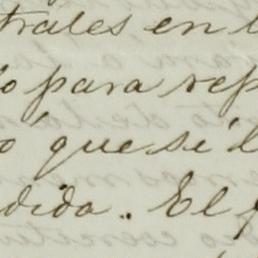 trales en l
o para rep
ó que si l
dida. El